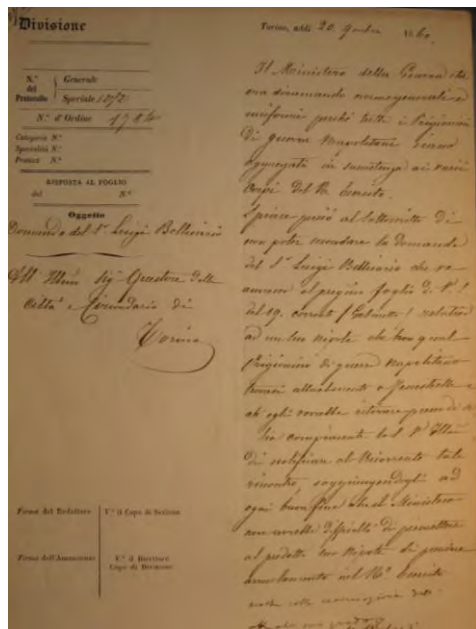 Divisione
N.° del Protocollo
Generale
Speciale
N.° d'Ordine
Categoria N.°
Specialità N.°
Pratica N.°
RISPOSTA AL FOGLIO
del N.°
Oggetto
Domanda del S.r Luigi Bellinario
All' Illmo Sig. Questore della
Città e Circondario di
Torino
Firma del Redattore
V.° il Capo di Sezione
Firma dell'Ammanuense
V.° il Direttore
Capo di Divisione
Torino, addì 20 9mbre 1860
Il Ministero della Guerra sta
ora diramando norme generali e
uniformi perché tutti i Prigionieri
di guerra Napoletani siano
aggregati in sussistenza ai varii
Corpi del R. Esercito.
Spiace però al sottoscritto di
non poter secondare la Domanda
del S.r Luigi Bellinario che va
annessa al pregiato foglio di V. S.
del 19 corrente relativa
ad un suo Nipote che
Prigioniero di guerra Napolitano
trovasi attualmente a Fenestrelle e
ch'egli vorrebbe ritirare presso di sé
di notificare al Ricorrente tale
soggiungendogli ad
ogni buon fine che il Ministero
non avrebbe difficoltà di permettere
al predetto suo Nipote di prendere
arruolamento nel R.° Esercito